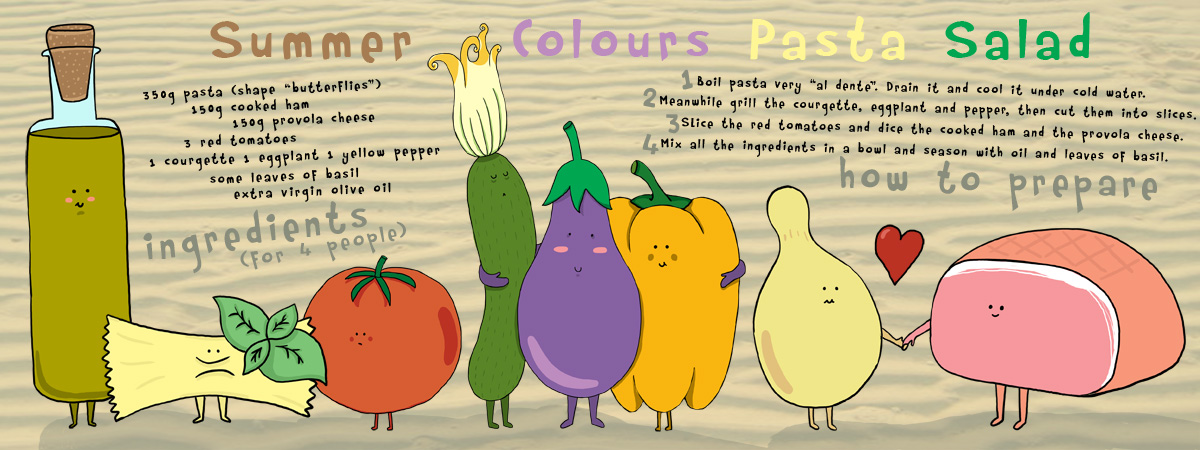 Summer Colours Pasta Salad
350g pasta (shape "butterflies")
150g cooked ham
150g provola cheese
3 red tomatoes
1 courgette 1 eggplant 1 yellow pepper
some leaves of basil
extra virgin olive oil
ingredients
(for 4 people)
1 Boil pasta very "al dente". Drain it and cool it under cold water.
2 Meanwhile grill the courgette, eggplant and pepper, then cut them into slices.
3 Slice the red tomatoes and dice the cooked ham and the provola cheese.
4 Mix all the ingredients in a bowl and season with oil and leaves of basil.
how to prepare